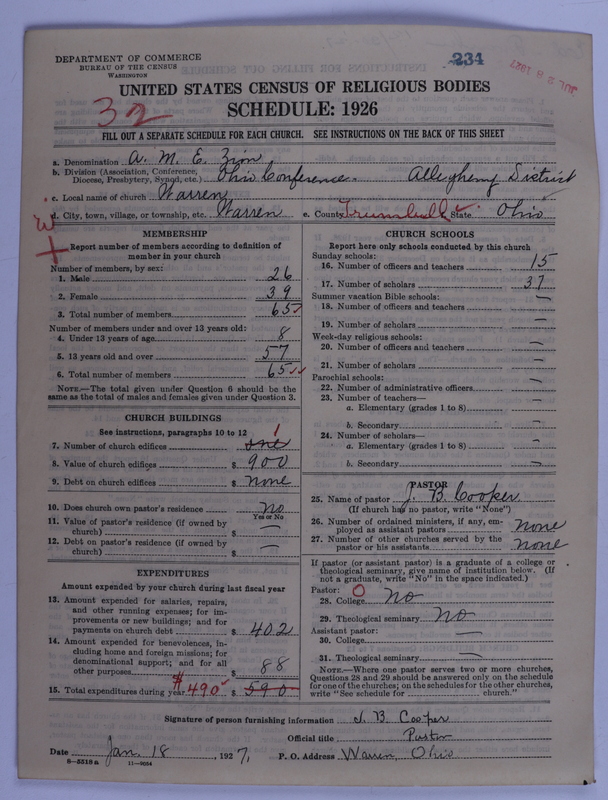 DEPARTMENT OF COMMERCE
BUREAU OF THE CENSUS
WASHINGTON
234
JUL 28 1927
UNITED STATES CENSUS OF RELIGIOUS BODIES
SCHEDULE: 1926
32
FILL OUT A SEPARATE SCHEDULE FOR EACH CHURCH. SEE INSTRUCTIONS ON THE BACK OF THIS SHEET
a. Denomination A. M. E. Zion
b. Division (Association, Conference, Diocese, Presbytery, Synod, etc.) Ohio Conference - Allegheny District
c. Local name of church Warren
d. City, town, village, or township, etc. Warren e. County Trumbull State Ohio
MEMBERSHIP
Report number of members according to definition of
member in your church
Number of members, by sex:
1. Male 26
2. Female 39
3. Total number of members 65
Number of members under and over 13 years old:
4. Under 13 years of age 8
5. 13 years old and over 57
6. Total number of members 65
NOTE.—The total given under Question 6 should be
same as the total of males and females given under Question 3.
CHURCH BUILDINGS
See instructions, paragraphs 10 to 12
7. Number of church edifices one 1
8. Value of church edifices $ 900
9. Debt on church edifices $ none
10. Does church own pastor's residence? no
Yes or No
11. Value of pastor's residence (if owned by
church) $ —
12. Debt on pastor's residence (if owned by
church) $ —
EXPENDITURES
Amount expended by your church during last fiscal year
13. Amount expended for salaries, repairs,
and other running expenses; for im-
provements or new buildings; and for
payments on church debt $ 402
14. Amount expended for benevolences, in-
cluding home and foreign missions; for
denominational support; and for all
other purposes $ 88
15. Total expenditures during year $490 $ 590
CHURCH SCHOOLS
Report here only schools conducted by this church
Sunday schools:
16. Number of officers and teachers 15
17. Number of scholars 37
Summer vacation Bible schools:
18. Number of officers and teachers —
19. Number of scholars —
Week-day religious schools:
20. Number of officers and teachers —
21. Number of scholars —
Parochial schools:
22. Number of administrative officers —
23. Number of teachers—
a. Elementary (grades 1 to 8) —
b. Secondary —
24. Number of scholars—
a. Elementary (grades 1 to 8) —
b. Secondary —
PASTOR
25. Name of pastor J. B. Cooper
(If church has no pastor, write "None")
26. Number of ordained ministers, if any, em-
ployed as assistant pastors none
27. Number of other churches served by the
pastor or his assistants none
If pastor (or assistant pastor) is a graduate of a college or
theological seminary, give name of institution below. (If
not a graduate, write "No" in the space indicated.)
Pastor: O
28. College no
29. Theological seminary no
Assistant pastor:
30. College —
31. Theological seminary —
NOTE.—Where one pastor serves two or more churches,
Questions 28 and 29 should be answered only on the schedule
for one of the churches; on the schedules for the other churches,
write "See schedule for church."
Signature of person furnishing information J. B. Cooper
Official title Pastor
Date Jan. 18, 1927, P. O. Address Warren, Ohio
8—5518a 11—9054